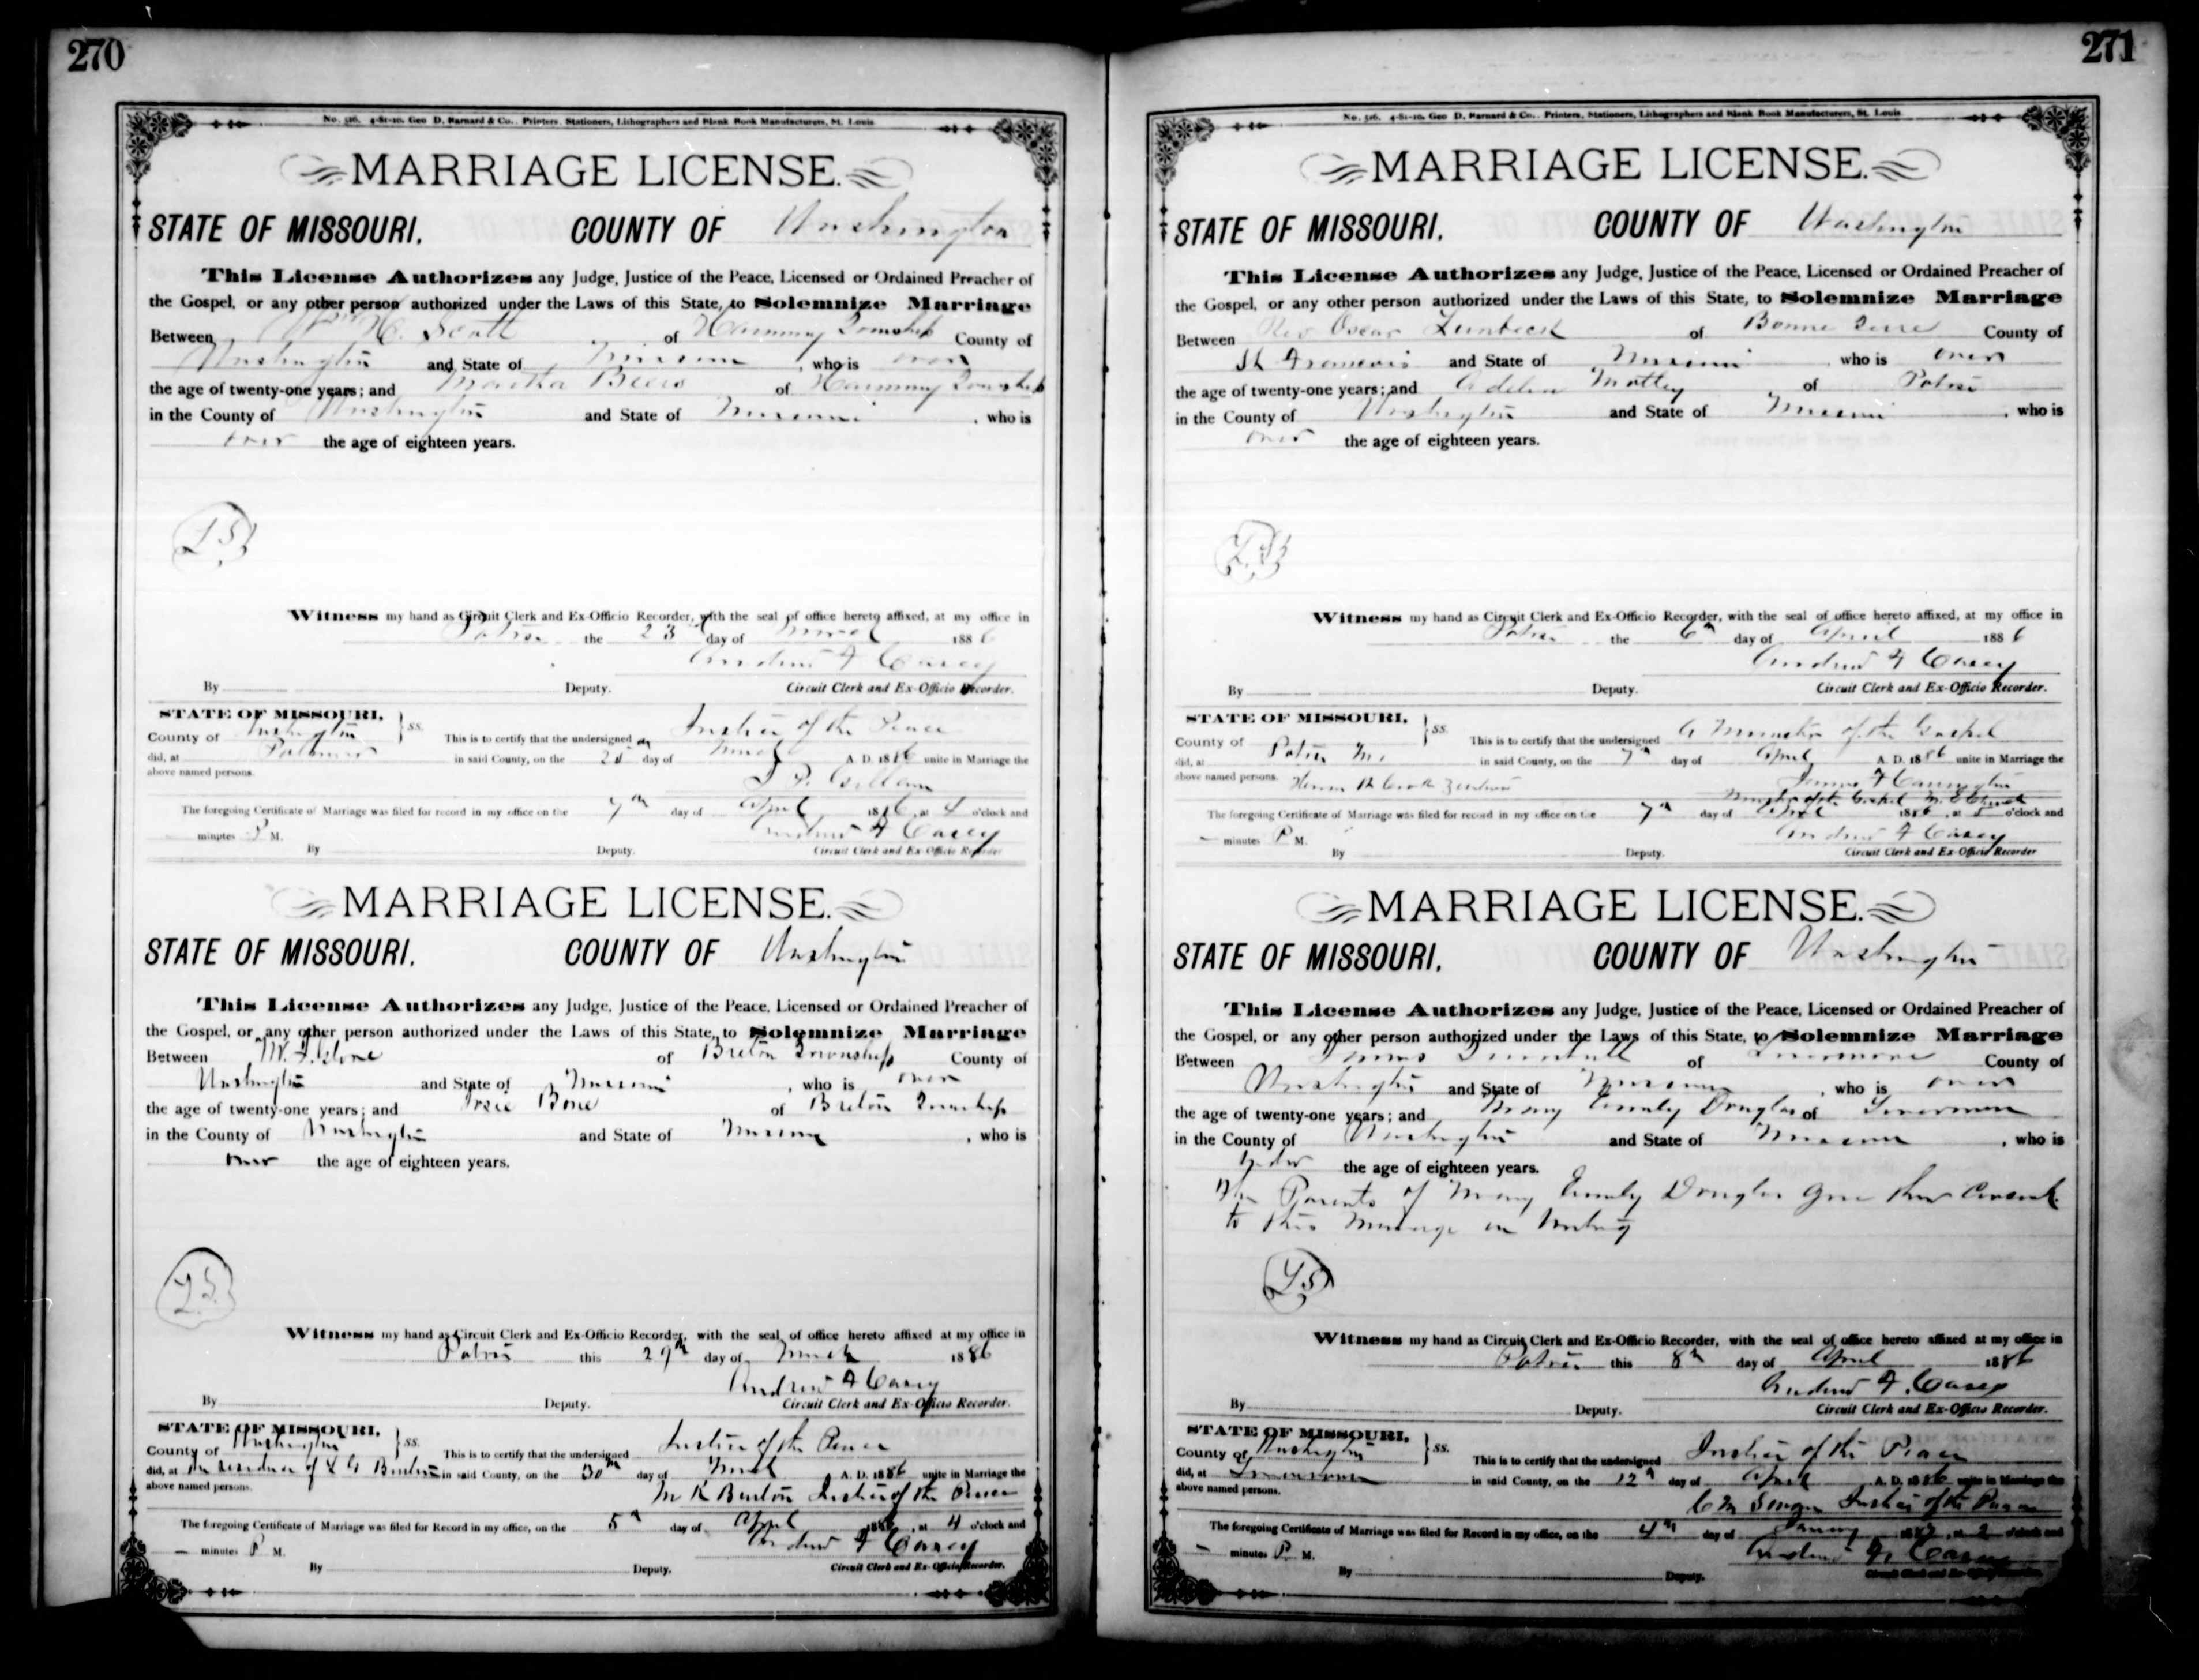 270
No. 516. 4-81-10. Geo D. Barnard & Co.. Printers. Stationers, Lithographers and Blank Book Manufacturers, St. Louis
MARRIAGE LICENSE.
STATE OF MISSOURI. COUNTY OF Washington
This License Authorizes any Judge, Justice of the Peace, Licensed or Ordained Preacher of
the Gospel, or any other person authorized under the Laws of this State, to Solemnize Marriage
Between H. Scott of Harmony Township County of
Washington and State of Missouri, who is over
the age of twenty-one years; and Martha Beers of Harmony Township
in the County of Washington and State of Missouri, who is
over the age of eighteen years.
L S
Witness my hand as Circuit Clerk and Ex-Officio Recorder, with the seal of office hereto affixed, at my office in
Potosi the 23 day of March 1886
Andrew F Casey
By Deputy. Circuit Clerk and Ex-Officio Recorder.
STATE OF MISSOURI, ss.
County of Washington This is to certify that the undersigned Justice of the Peace
did, at in said County, on the day of March A. D. 1886 unite in Marriage the
above named persons.
The foregoing Certificate of Marriage was filed for record in my office on the 7th day of April 1886, at 4 o'clock and
minutes P M. Andrew F Casey
By Deputy. Circuit Clerk and Ex-Officio Recorder
MARRIAGE LICENSE.
STATE OF MISSOURI. COUNTY OF Washington
This License Authorizes any Judge, Justice of the Peace, Licensed or Ordained Preacher of
the Gospel, or any other person authorized under the Laws of this State, to Solemnize Marriage
Between of Breton Township County of
Washington and State of Missouri, who is over
the age of twenty-one years; and Josie Bone of Breton Township
in the County of Washington and State of Missouri, who is
over the age of eighteen years.
L S
Witness my hand as Circuit Clerk and Ex-Officio Recorder, with the seal of office hereto affixed at my office in
Potosi this 29th day of March 1886
Andrew F Casey
By Deputy. Circuit Clerk and Ex-Officio Recorder.
STATE OF MISSOURI, ss.
County of Washington This is to certify that the undersigned Justice of the Peace
did, at the residence of in said County, on the 30th day of March A. D. 1886 unite in Marriage the
above named persons. Justice of the Peace
The foregoing Certificate of Marriage was filed for Record in my office, on the 5th day of April 1886, at 4 o'clock and
— minutes P M. Andrew F Casey
By Deputy. Circuit Clerk and Ex-Officio Recorder.
271
No. 516. 4-81-10. Geo D. Barnard & Co.. Printers, Stationers, Lithographers and Blank Book Manufacturers, St. Louis
MARRIAGE LICENSE.
STATE OF MISSOURI. COUNTY OF Washington
This License Authorizes any Judge, Justice of the Peace, Licensed or Ordained Preacher of
the Gospel, or any other person authorized under the Laws of this State, to Solemnize Marriage
Between Rev Oscar of Bonne Terre County of
St Francois and State of Missouri who is over
the age of twenty-one years; and Mottey of Potosi
in the County of Washington and State of Missouri, who is
over the age of eighteen years.
L S
Witness my hand as Circuit Clerk and Ex-Officio Recorder, with the seal of office hereto affixed, at my office in
Potosi the 6th day of April 1886
Andrew F Casey
By Deputy. Circuit Clerk and Ex-Officio Recorder.
STATE OF MISSOURI, ss.
County of Potosi Mo This is to certify that the undersigned A Minister of the Gospel
did, at in said County, on the 7th day of April A. D. 1886 unite in Marriage the
above named persons.
Minister of the Gospel M. E Church
The foregoing Certificate of Marriage was filed for record in my office on the 7th day of April 1886, at 5 o'clock and
— minutes P M. Andrew F Casey
By Deputy. Circuit Clerk and Ex-Officio Recorder
MARRIAGE LICENSE.
STATE OF MISSOURI. COUNTY OF Washington
This License Authorizes any Judge, Justice of the Peace, Licensed or Ordained Preacher of
the Gospel, or any other person authorized under the Laws of this State, to Solemnize Marriage
Between of County of
Washington and State of Missouri, who is over
the age of twenty-one years; and Mary Emily Douglas of
in the County of Washington and State of Missouri, who is
under the age of eighteen years.
The Parents of Mary Emily Douglas give their Consent
to this Marriage in writing
L S
Witness my hand as Circuit Clerk and Ex-Officio Recorder, with the seal of office hereto affixed at my office in
Potosi this 8th day of April 1886
Andrew F. Casey
By Deputy. Circuit Clerk and Ex-Officio Recorder.
STATE OF MISSOURI, ss.
County of Washington This is to certify that the undersigned Justice of the Peace
did, at in said County, on the 12th day of April A. D. 1886 unite in Marriage the
above named persons. Justice of the Peace
The foregoing Certificate of Marriage was filed for Record in my office, on the 4th day of January 1887, at 2 o'clock and
— minutes P. M. Andrew F. Casey
By Deputy. Circuit Clerk and Ex-Officio Recorder.